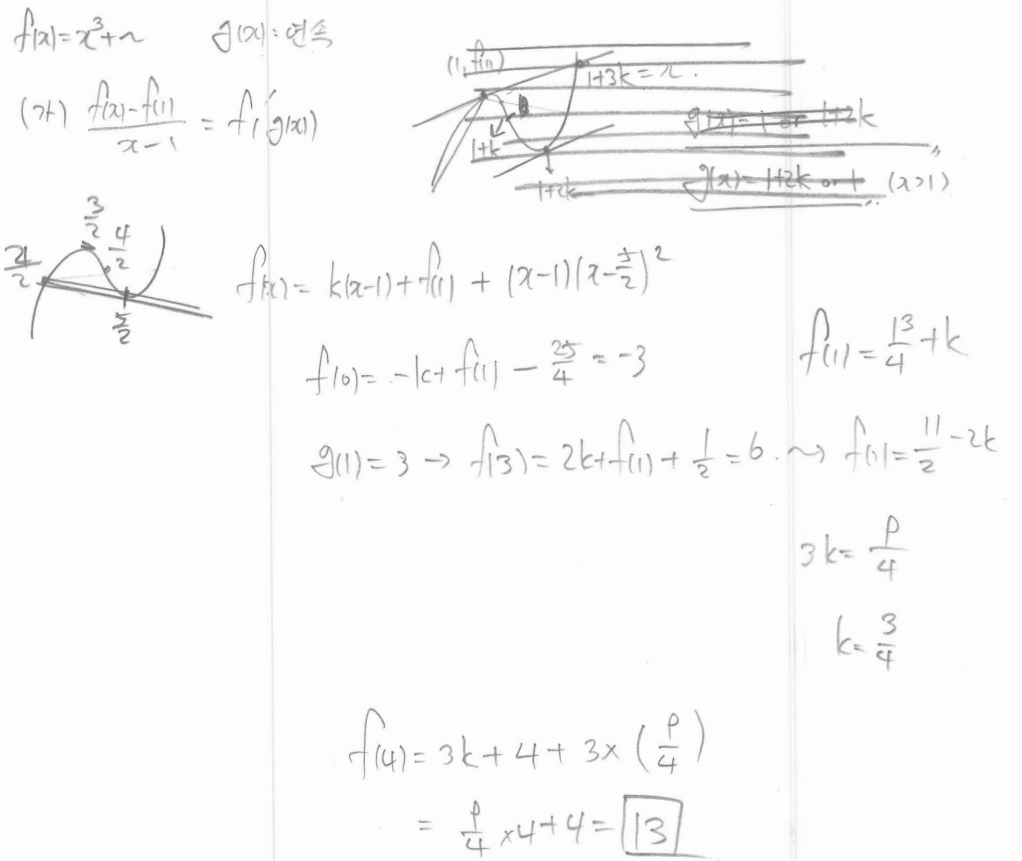 f(x)=x³+~ g(x): 연속
(가) (f(x)-f(1))/(x-1) = f'(g(x))
(1, f(1))
1+3k=x.
1+k
1+2k
g(x)=1 or 1+2k
g(x)=1+2k or 1 (x>1)
3/2
4/2
2/2
5/2
f(x)= k(x-1)+f(1)+(x-1)(x-5/2)²
f(0)= -k+f(1)-25/4=-3
f(1)=13/4+k
g(1)=3 → f(3)=2k+f(1)+1/2=6. ⇝ f(1)=11/2-2k
3k=9/4
k=3/4
f(4)=3k+4+3×(9/4)
= 9/4×4+4=13